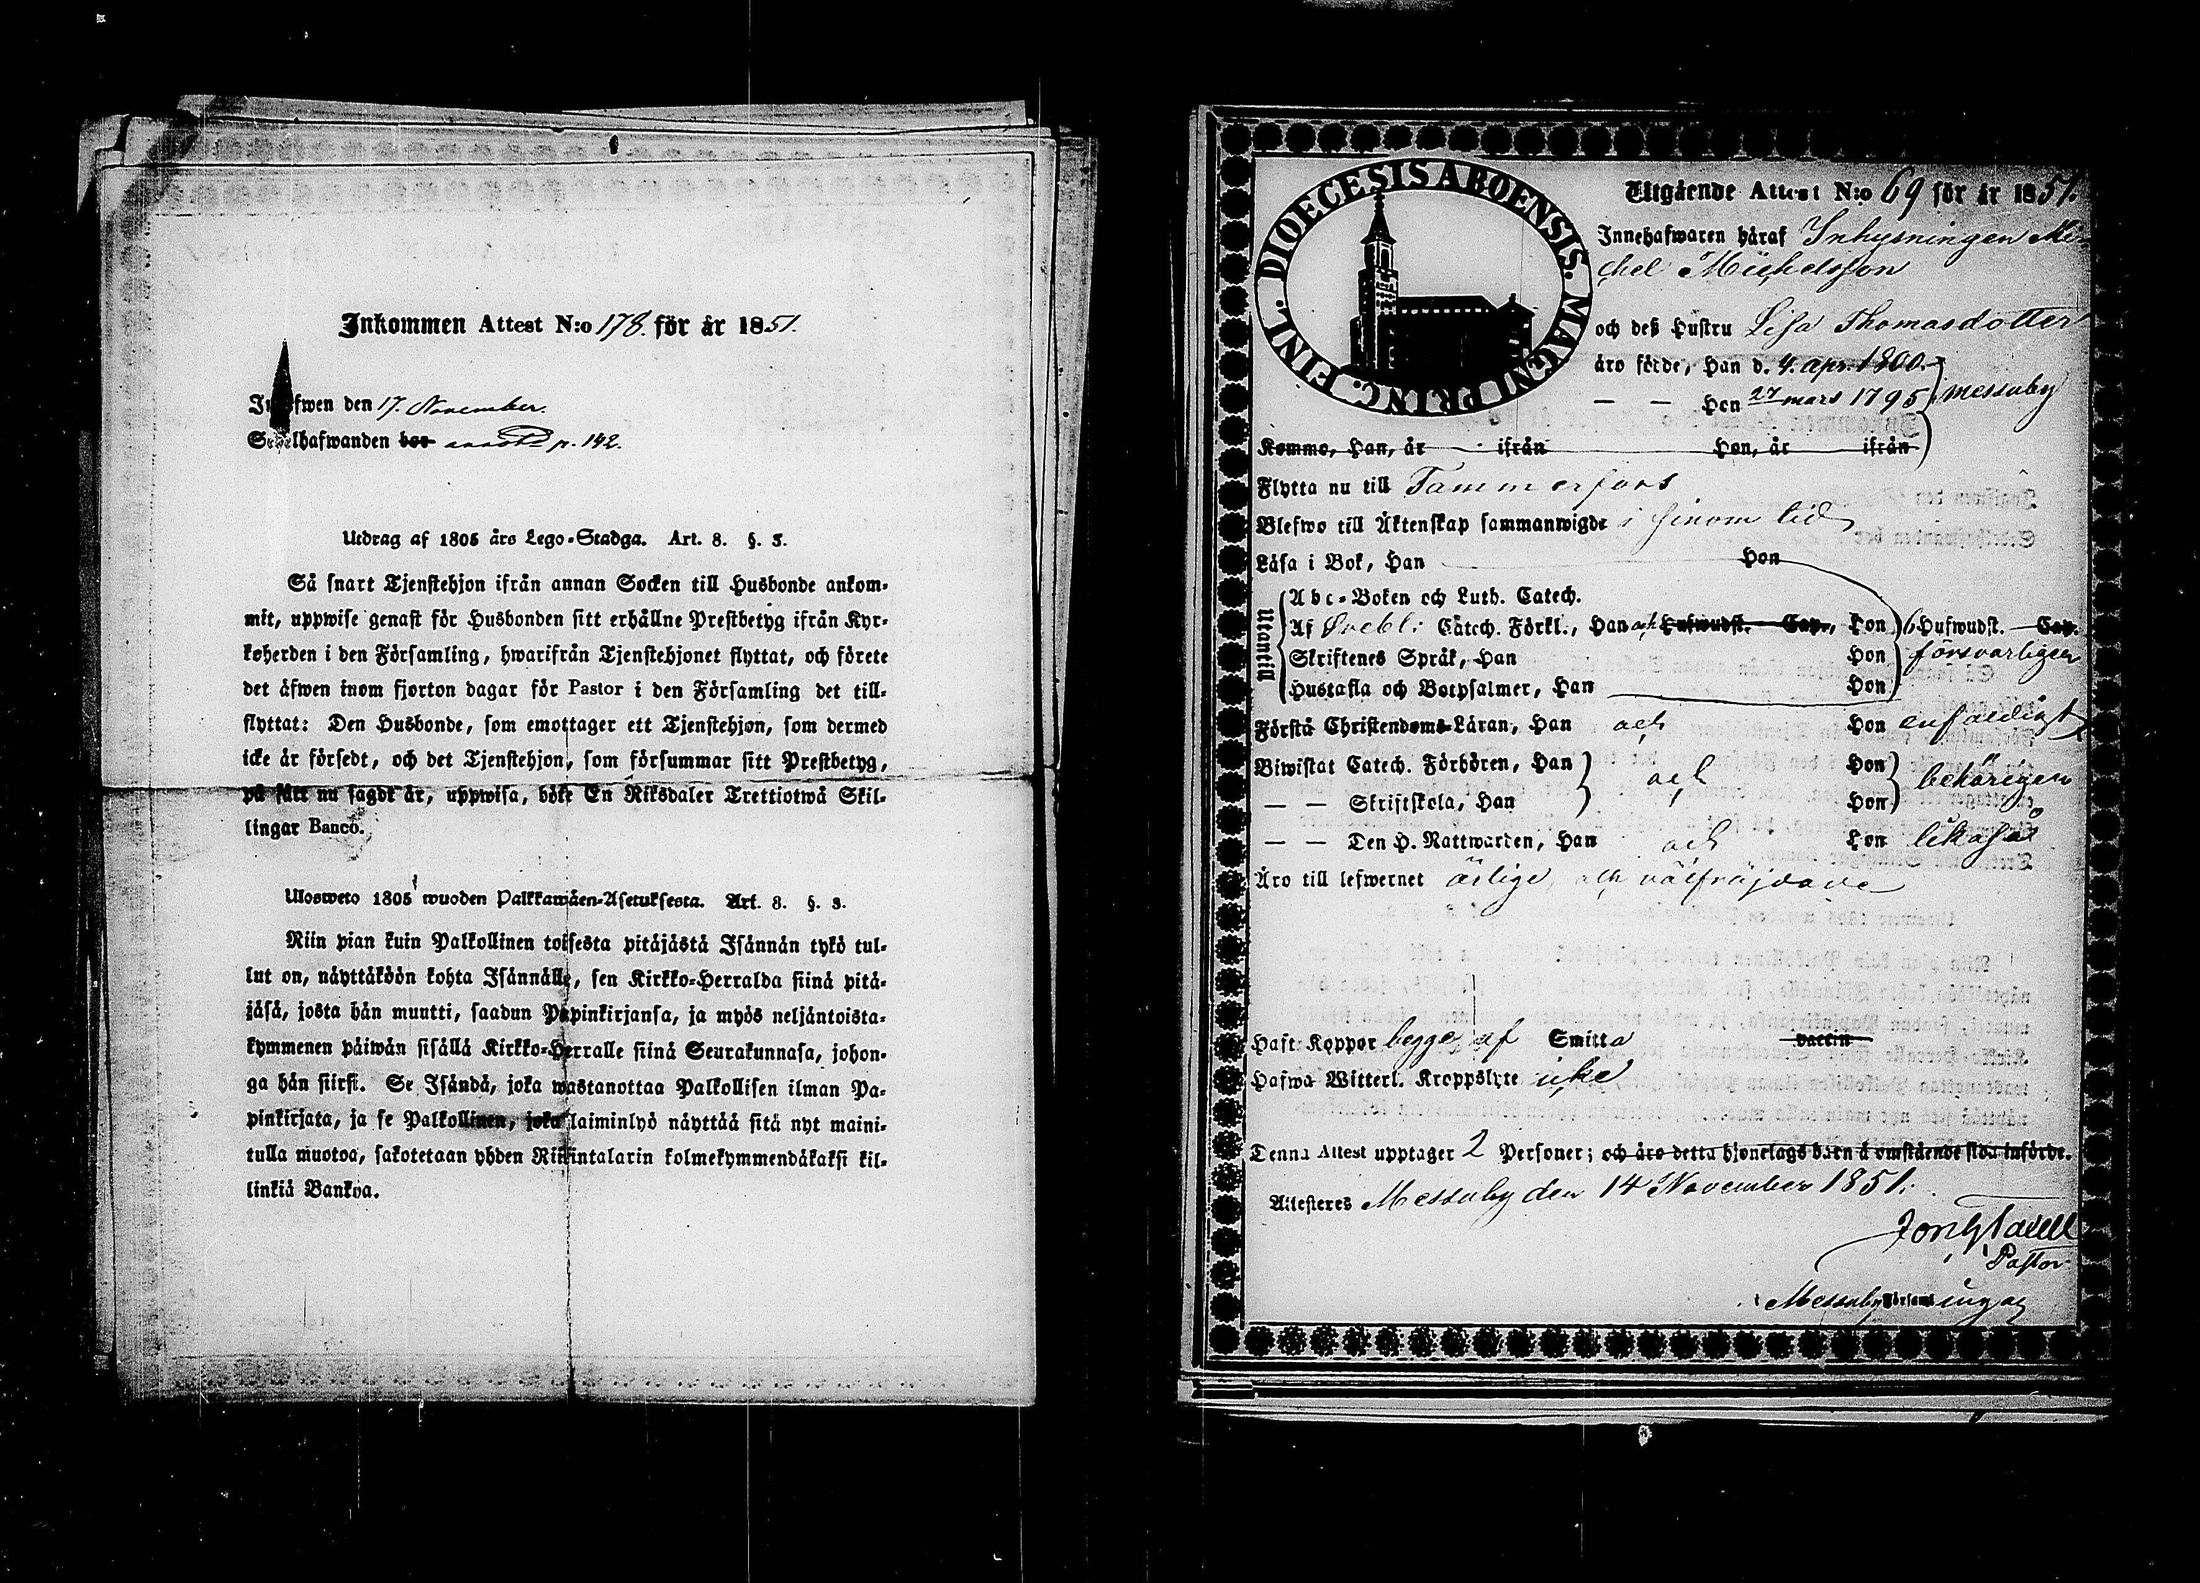 Inkommen Attest N:o 178. för år 1851.
Inskifwen den 17. November.
Sedelhafwanden bor p. 142.
Utdrag af 1805 års Lego-Stadga. Art. 8. §. 3.
Så snart Tjenstehjon ifrån annan Socken till Husbonde ankom-
mit, uppwise genast för Husbonden sitt erhållne Prestbetyg ifrån Kyr-
koherden i den Församling, hwarifrån Tjenstehjonet flyttat, och förete
det äfwen inom fjorton dagar för Pastor i den Församling det till-
flyttat: Den Husbonde, som emottager ett Tjenstehjon, som dermed
icke är försedt, och det Tjenstehjon, som försummar sitt Prestbetyg,
på sätt nu sagdt är, uppwisa, böte En Riksdaler Trettiotwå Skil-
lingar Banco.
Ulosweto 1805 wuoden Palkkawäen-Asetuksesta. Art. 8. §. 3.
Niin pian kuin Palkollinen toisesta pitäjästä Isännän tykö tul-
lut on, näyttäköön kohta Isännälle, sen Kirkko-Herralda siinä pitä-
jäsä, josta hän muutti, saadun Papinkirjansa, ja myös neljäntoista-
kymmenen päiwän sisällä Kirkko-Herralle siinä Seurakunnasa, johon-
ga hän siirsi. Se Isändä, joka wastanottaa Palkollisen ilman Pa-
pinkirjata, ja se Palkollinen, joka laiminlyö näyttää sitä nyt maini-
tulla muotoa, sakotetaan yhden Riikintalarin kolmekymmendäkaksi kil-
linkiä Bankoa.
FINL. DIOECESIS ABOENSIS. MAGNI PRINC.
Utgående Attest N:o 69 för år 1851.
Innehafwaren häraf Inhysningen Mi-
chel Michelsson
och deß Hustru Lisa Thomasdotter
äro födde, Han d. 4. apr. 1800.
— — Hon 27 mars 1795 Messuby
Komme, Han, år ifrån Hon, år ifrån
Flytta nu till Tammerfors
Blefwo till Äktenskap sammanwigde i sinom tid
Läsa i Bok, Han Hon
Utantill
Abc-Boken och Luth. Catech.
Af Svebli: Catech. Förkl., Han och Hufwudst. Cap., Hon 6 Hufwudst. Cap.
Skriftenes Språk, Han Hon försvarligen
Hustafla och Botpsalmer, Han Hon
Förstå Christendoms-Läran, Han och Hon enfaldigt
Biwistat Catech. Förhören, Han och Hon behörigen
— — Skriftskola, Han Hon
— — Den H. Nattwarden, Han och Hon likaså
Äro till lefwernet ärlige och välfräjdade
Haft Koppor begge af Smitta vaccin
Hafwa Witterl. Kroppslyte icke
Denna Attest upptager 2 Personer; och äro detta hjonelags barn å omstående sida införde.
Attesteres Messuby den 14 November 1851.
Pastor
i Messuby Församlingar